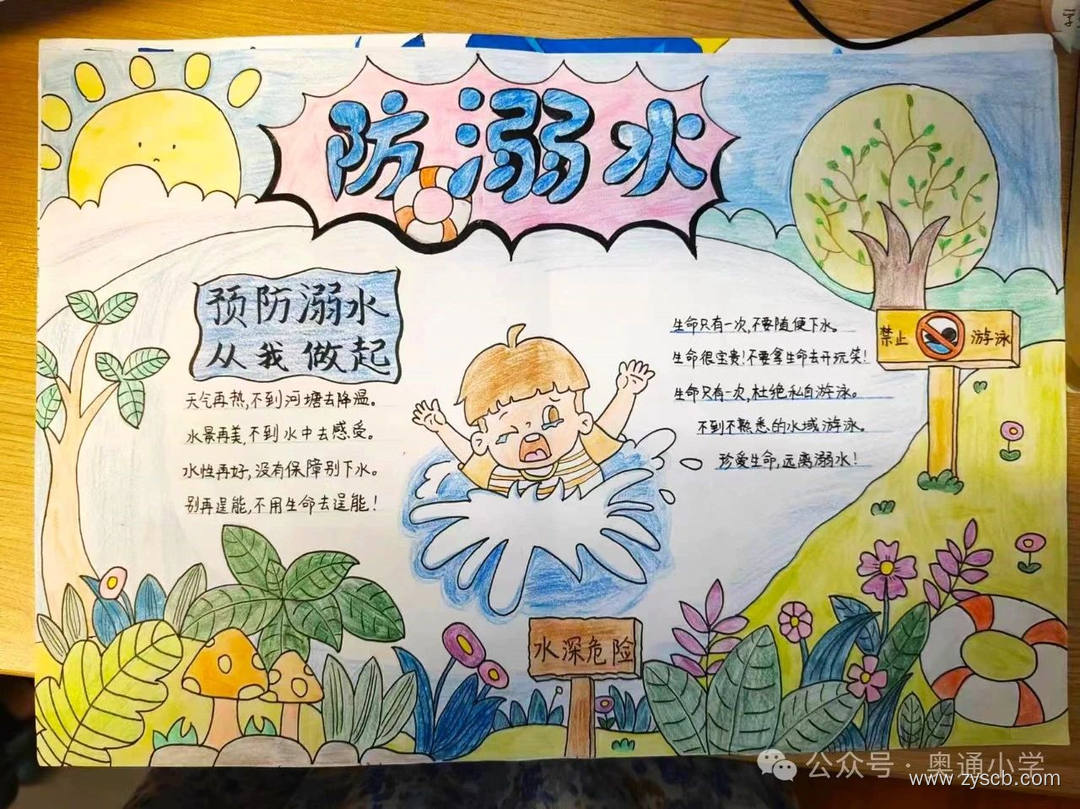 防溺水
预防溺水
从我做起
天气再热,不到河塘去降温。
水景再美,不到水中去感受。
水性再好,没有保障别下水。
别再逞能,不用生命去逞能!
生命只有一次,不要随便下水。
生命很宝贵!不要拿生命去开玩笑!
生命只有一次,杜绝私自游泳。
不到不熟悉的水域游泳。
珍爱生命,远离溺水!
禁止 游泳
水深危险
公众号·奥通小学
www.zyscb.com